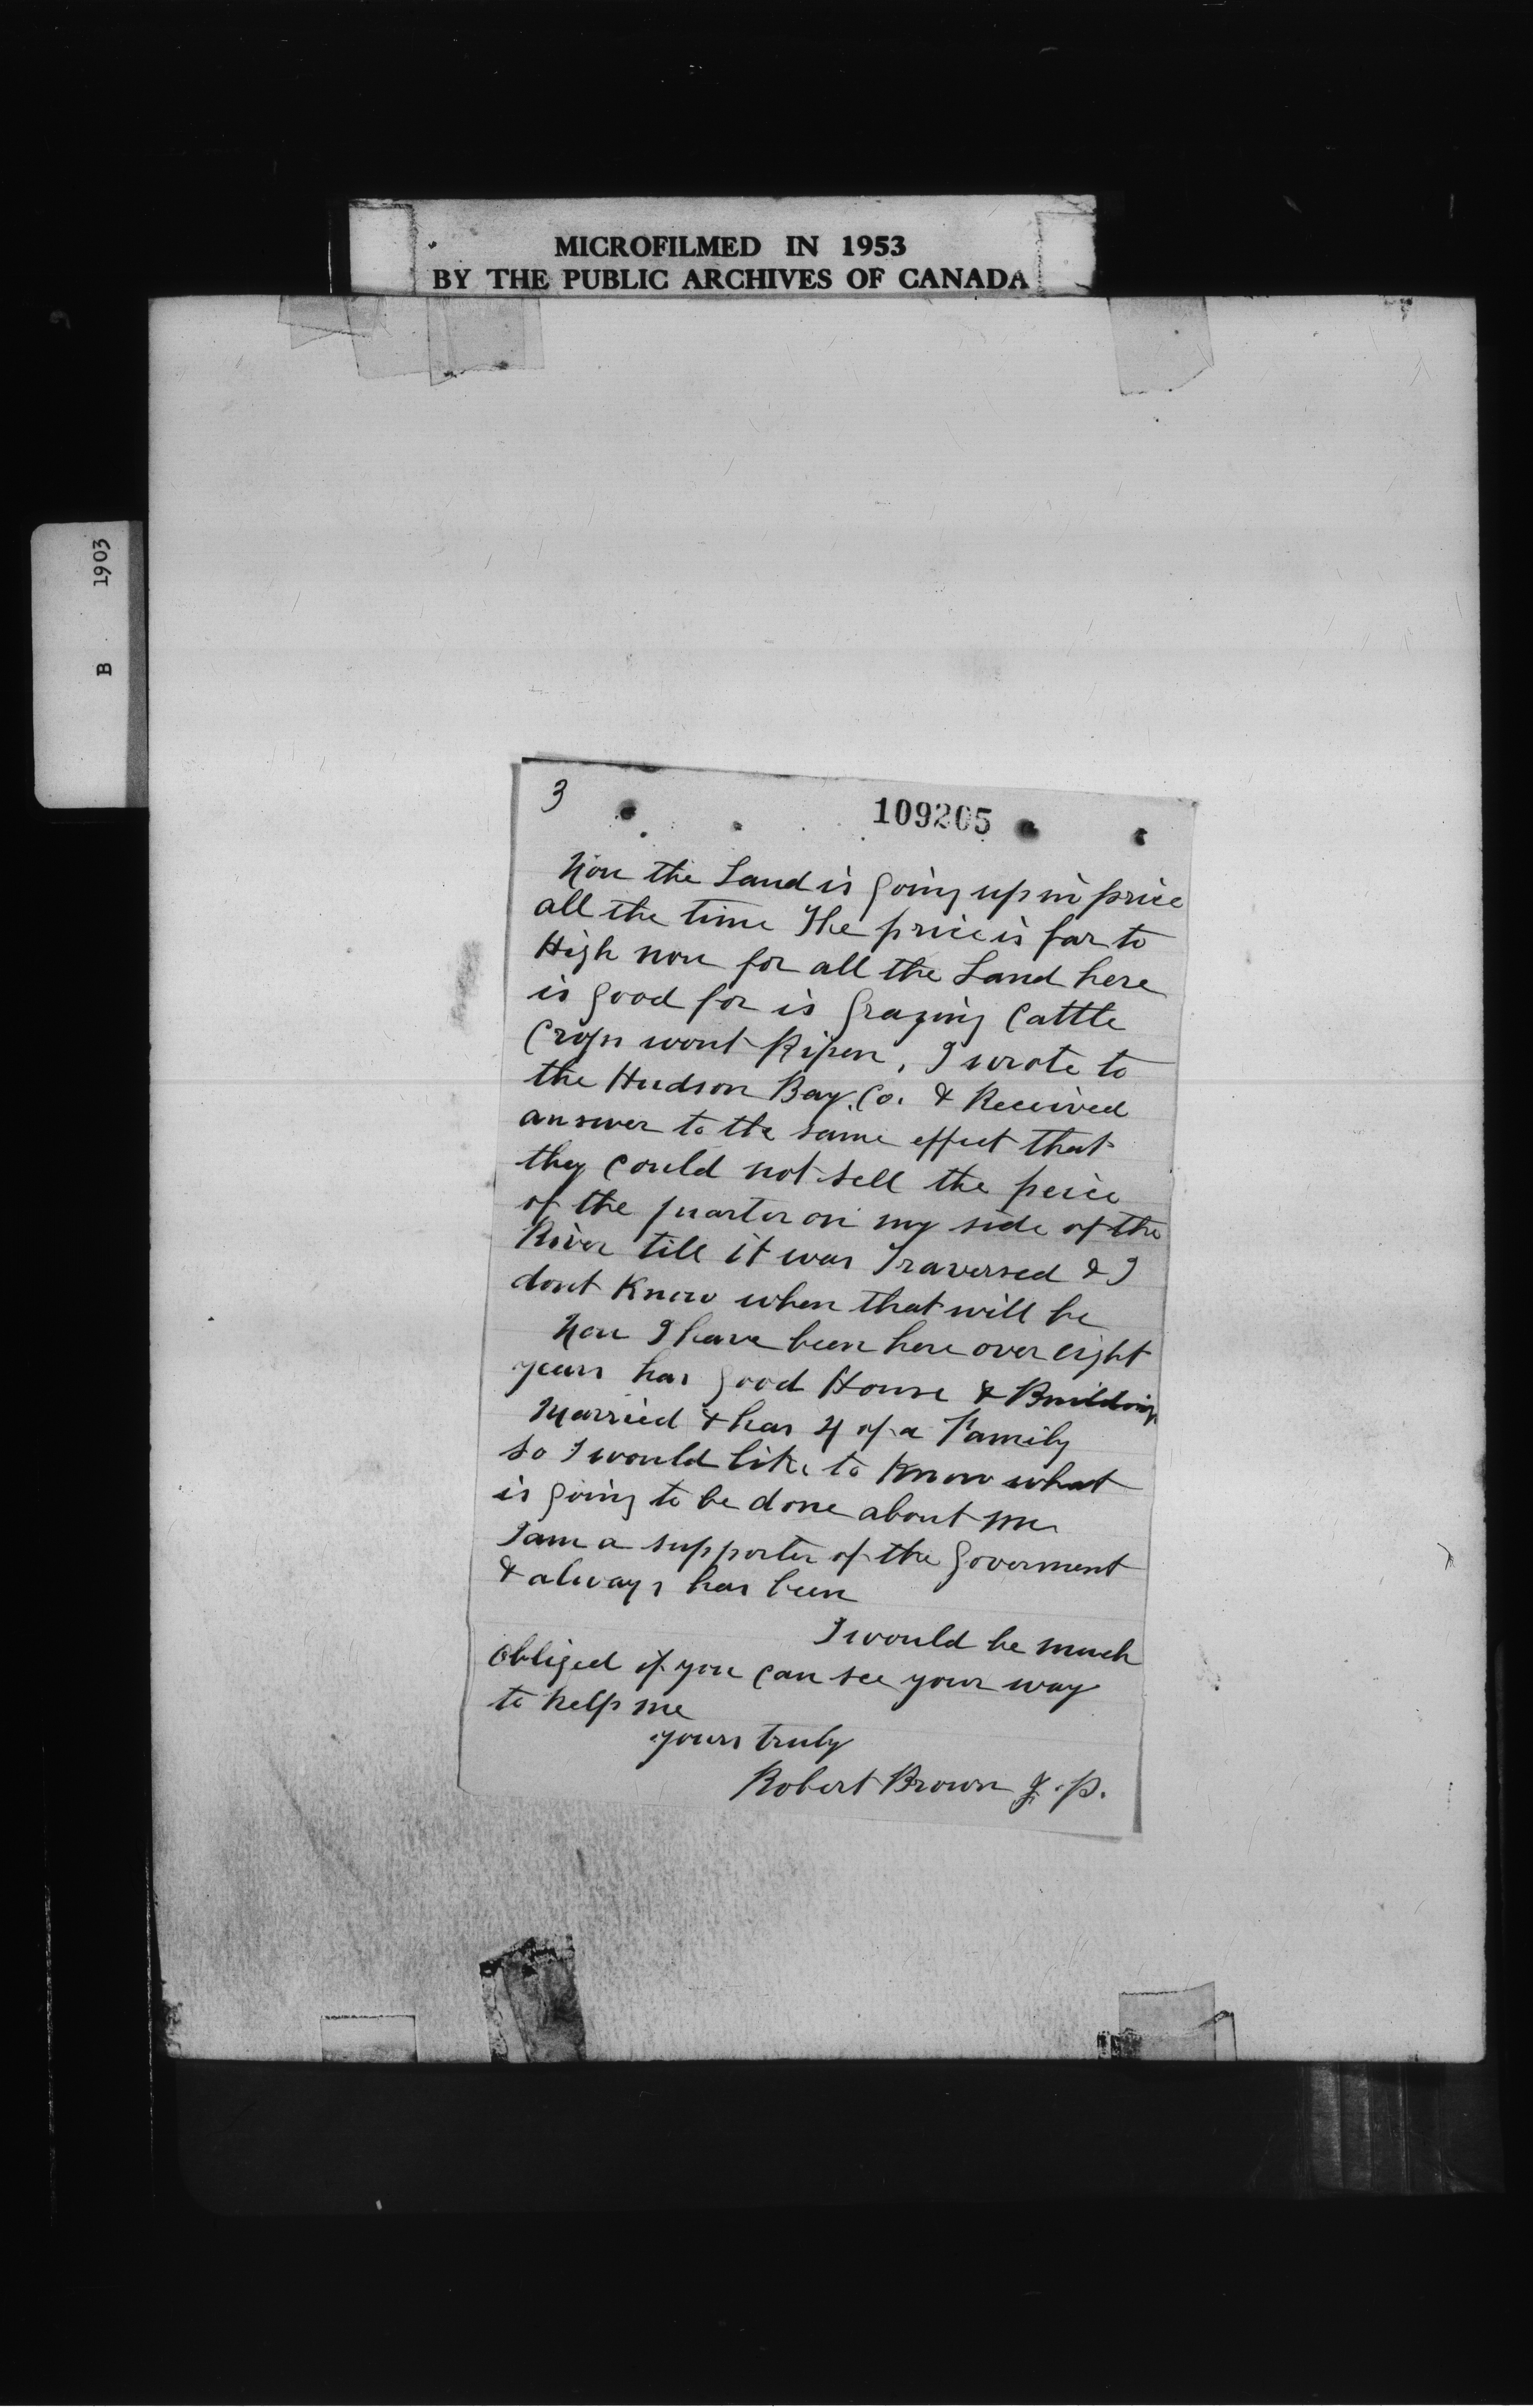 MICROFILMED IN 1953
BY THE PUBLIC ARCHIVES OF CANADA
B 1903
3
109205
Now the Land is going up in price
all the time The price is far to
High now for all the Land here
is good for is Grazing Cattle
Crops wont Ripen, I wrote to
the Hudson Bay. Co. & Received
answer to the same effect that
they could not sell the peice
of the quarter on my side of the
River till it was Traversed & I
dont Know when that will be
Now I have been here over eight
years has good House & Buildings
Married & has 4 of a Family
so I would like to Know what
is going to be done about me
I am a supporter of the Goverment
& always has been
I would be much
obliged if you can see your way
to help me
yours truly
Robert Brown J.P.